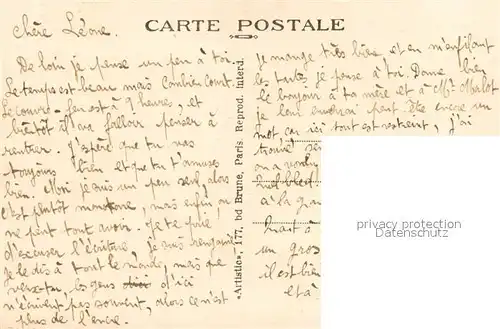 CARTE POSTALE
Chère Léone.
De loin je pense un peu à toi.
Le temps est beau mais
Le couvre-feu est à 9 heures, et
bientôt il va falloir penser à
rentrer. J'espère que tu vas
toujours bien et que tu t'amuses
bien. Moi je suis un peu seul, alors
c'est plutôt monotone, mais enfin on
ne peut tout avoir. Je te prie,
d'excuser l'écriture, je suis
je le dis à tout le monde, mais que
veux-tu, les gens d'ici
n'écrivent pas souvent, alors ce n'est
plus de l'encre.
«Artistic», 177, bd Brune, Paris. Reprod. interd.
je mange très bien et en m'enfilant
les tartes je pense à toi. Donne bien
le bonjour à ta mère et à Melle Malot
je leur enverrai peut être encore un
mot car ici tout est restreint, j'ai
trouvé
on a voulu
à la
haut à
un gros
il est bien
et à
privacy protection
Datenschutz